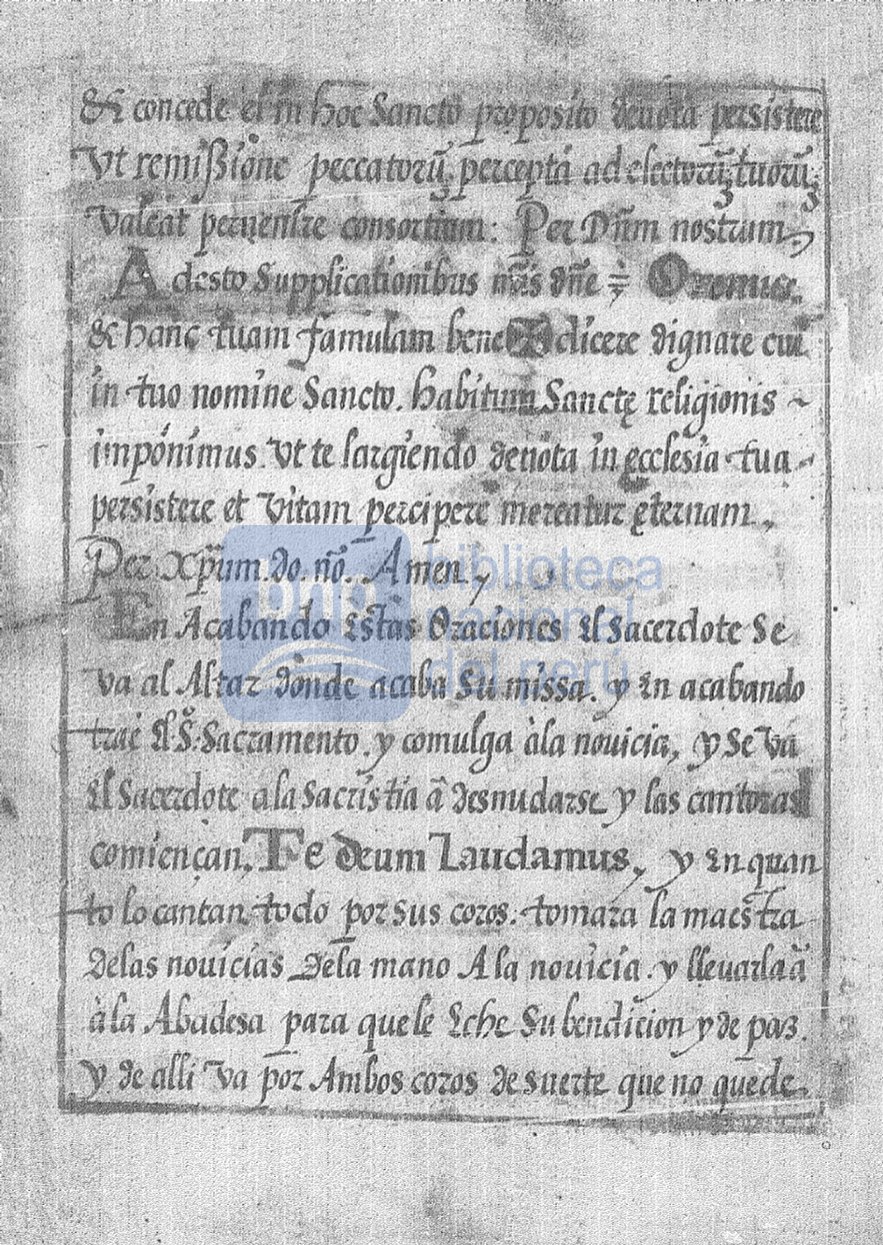 & concede ei in hoc Sancto proposito deuota persistere
Vt remißione peccatorũ percepta ad electorũ tuorũ
Valeat peruenire consortium: Per Dñm nostrum,
Adesto Supplicationibus nr̃is dñe Oremus.
& hanc tuam famulam bene✠dicere dignare cui
in tuo nomine Sancto. habitum Sanctę religionis ~
imponimus. Vt te largiendo deuota in ęcclesia tua
persistere et Vitam percipere mereatur ęternam.
Per Xp̃um. do. nõ. Amen,
En Acabando Estas Oraciones El Sacerdote Se
Va al Altar donde acaba Su missa. y En acabando
trae El Sº. Sacramento. y comulga à la nouicia, y Se Va
El Sacerdote a la Sacristia â desnudarse y las cantoras
comiençan. Te deum Laudamus, y En quan
to lo cantan todo por sus coros. tomara la maestra
de las nouicias de la mano A la nouicia. y lleuarla â
à la Abadesa para que le Eche Su bendicion y de paz.
y de alli Va por Ambos coros de suerte que no quede
biblioteca
nacional
del perú
bnp